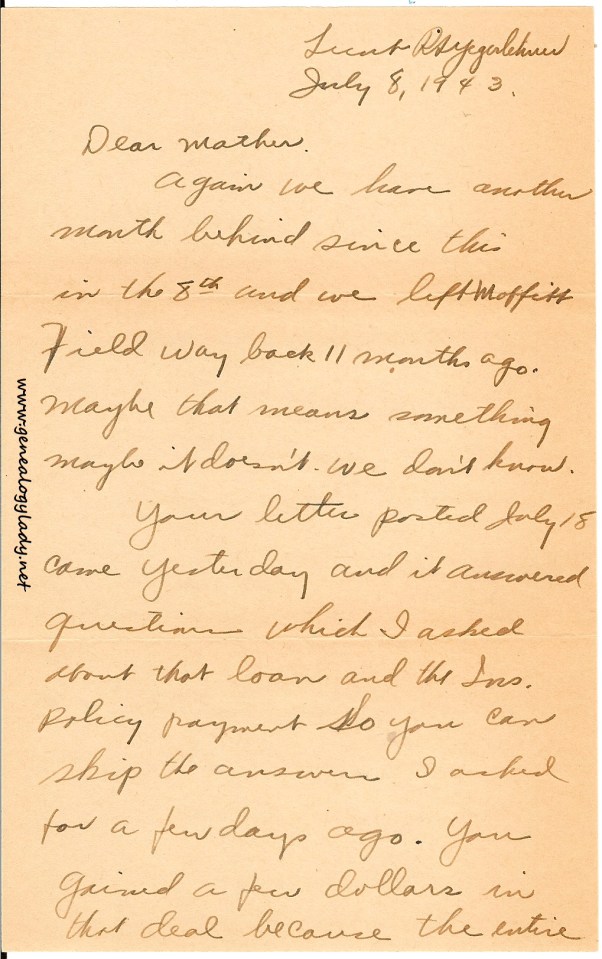 Lieut R S Yegerlehner
July 8, 1943.
Dear Mother.
Again we have another
month behind since this
in the 8th and we left Moffitt
Field way back 11 months ago.
Maybe that means something
maybe it doesn't. We don't know.
Your letter posted July 18
came yesterday and it answered
questions which I asked
about that loan and the Ins.
policy payment So you can
skip the answers I asked
for a few days ago. You
gained a few dollars in
that deal because the entire
www.genealogylady.net